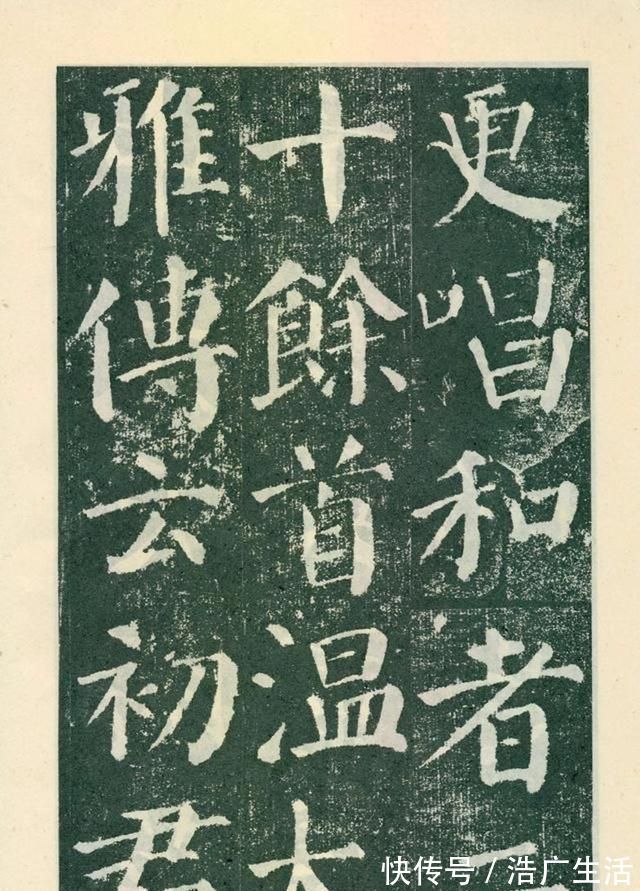 更唱和者
十餘首温大
雅傳云初君
快传号／浩广生活